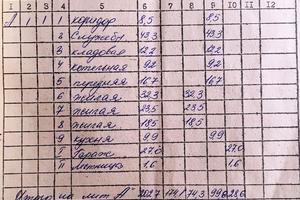 1 2 3 4 5 6 7 8 9 10 11 12
А 1 1 1 коридор 8,5 8,5
2 Служебн. 43,3 43,3
3 кладовая 12,2 12,2
4 котельная 9,2 9,2
5 передняя 16,7 16,7
6 жилая 32,3 32,3
7 жилая 23,5 23.5
8 жилая 18,5 18,5
9 кухня 9,9 9,9
I Гараж 27,0 27,0
II 1,6 1,6
Итого по лит "А" 74,3 28,6